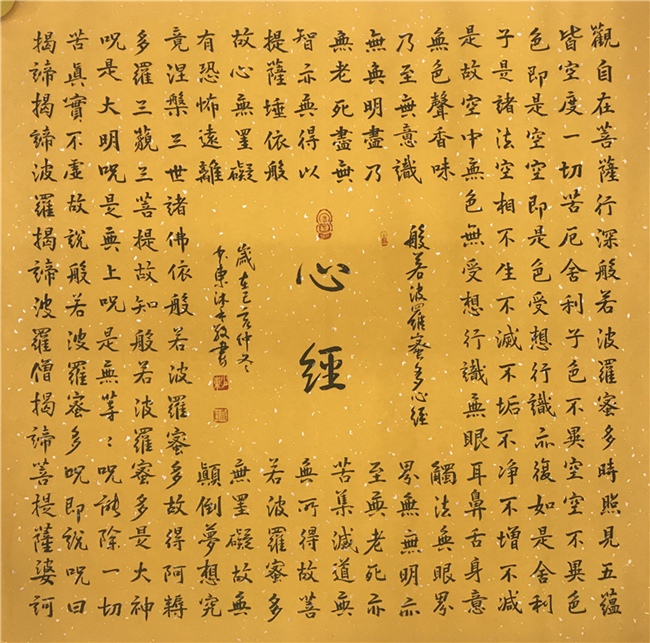 觀自在菩薩行深般若波羅蜜多時照見五蘊
皆空度一切苦厄舍利子色不異空空不異色
色即是空空即是色受想行識亦復如是舍利
子是諸法空相不生不滅不垢不净不增不減
是故空中無色無受想行識無眼耳鼻舌身意
無色聲香味觸法無眼界
乃至無意識界無無明亦
無無明盡乃至無老死亦
無老死盡無苦集滅道無
智亦無得以無所得故菩
提薩埵依般若波羅蜜多
故心無罣礙無罣礙故無
有恐怖遠離顛倒夢想究
竟涅槃三世諸佛依般若波羅蜜多故得阿耨
多羅三藐三菩提故知般若波羅蜜多是大神
呪是大明呪是無上呪是無等〻呪能除一切
苦真實不虛故說般若波羅蜜多呪即說呪曰
揭諦揭諦波羅揭諦波羅僧揭諦菩提薩婆訶
般若波羅蜜多心經
心經
歲在己亥仲冬
東沐敬書